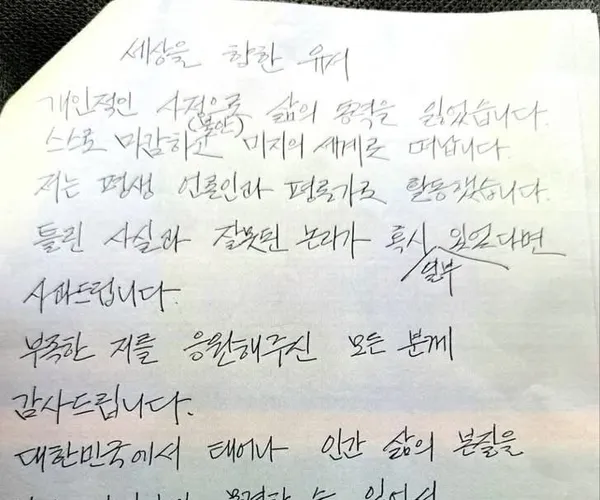 세상을 향한 유서
개인적인 사정으로 삶의 동력을 잃었습니다.
(불안)
스스로 마감하고 미지의 세계로 떠납니다.
저는 평생 언론인과 평론가로 활동했습니다.
틀린 사실과 잘못된 논리가 혹시 있었다면
일부
사과드립니다.
부족한 저를 응원해주신 모든 분께
감사드립니다.
대한민국에서 태어나 인간 삶의 본질을
수 있어서